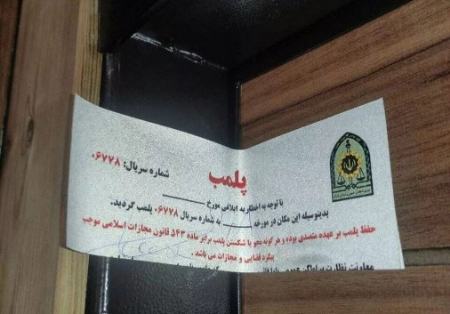 شماره سریال: ۰۶۷۷۸
پلمب
با توجه به اخطاریه ابلاغی مورخ
بدینوسیله این مکان در مورخه به شماره سریال ۰۶۷۷۸ پلمب گردید.
حفظ پلمب بر عهده متصدی بوده و هر گونه محو یا شکستن پلمب برابر ماده ۵۴۳ قانون مجازات اسلامی موجب
پیگرد قضایی و مجازات می باشد.
معاونت نظارت بر اماکن